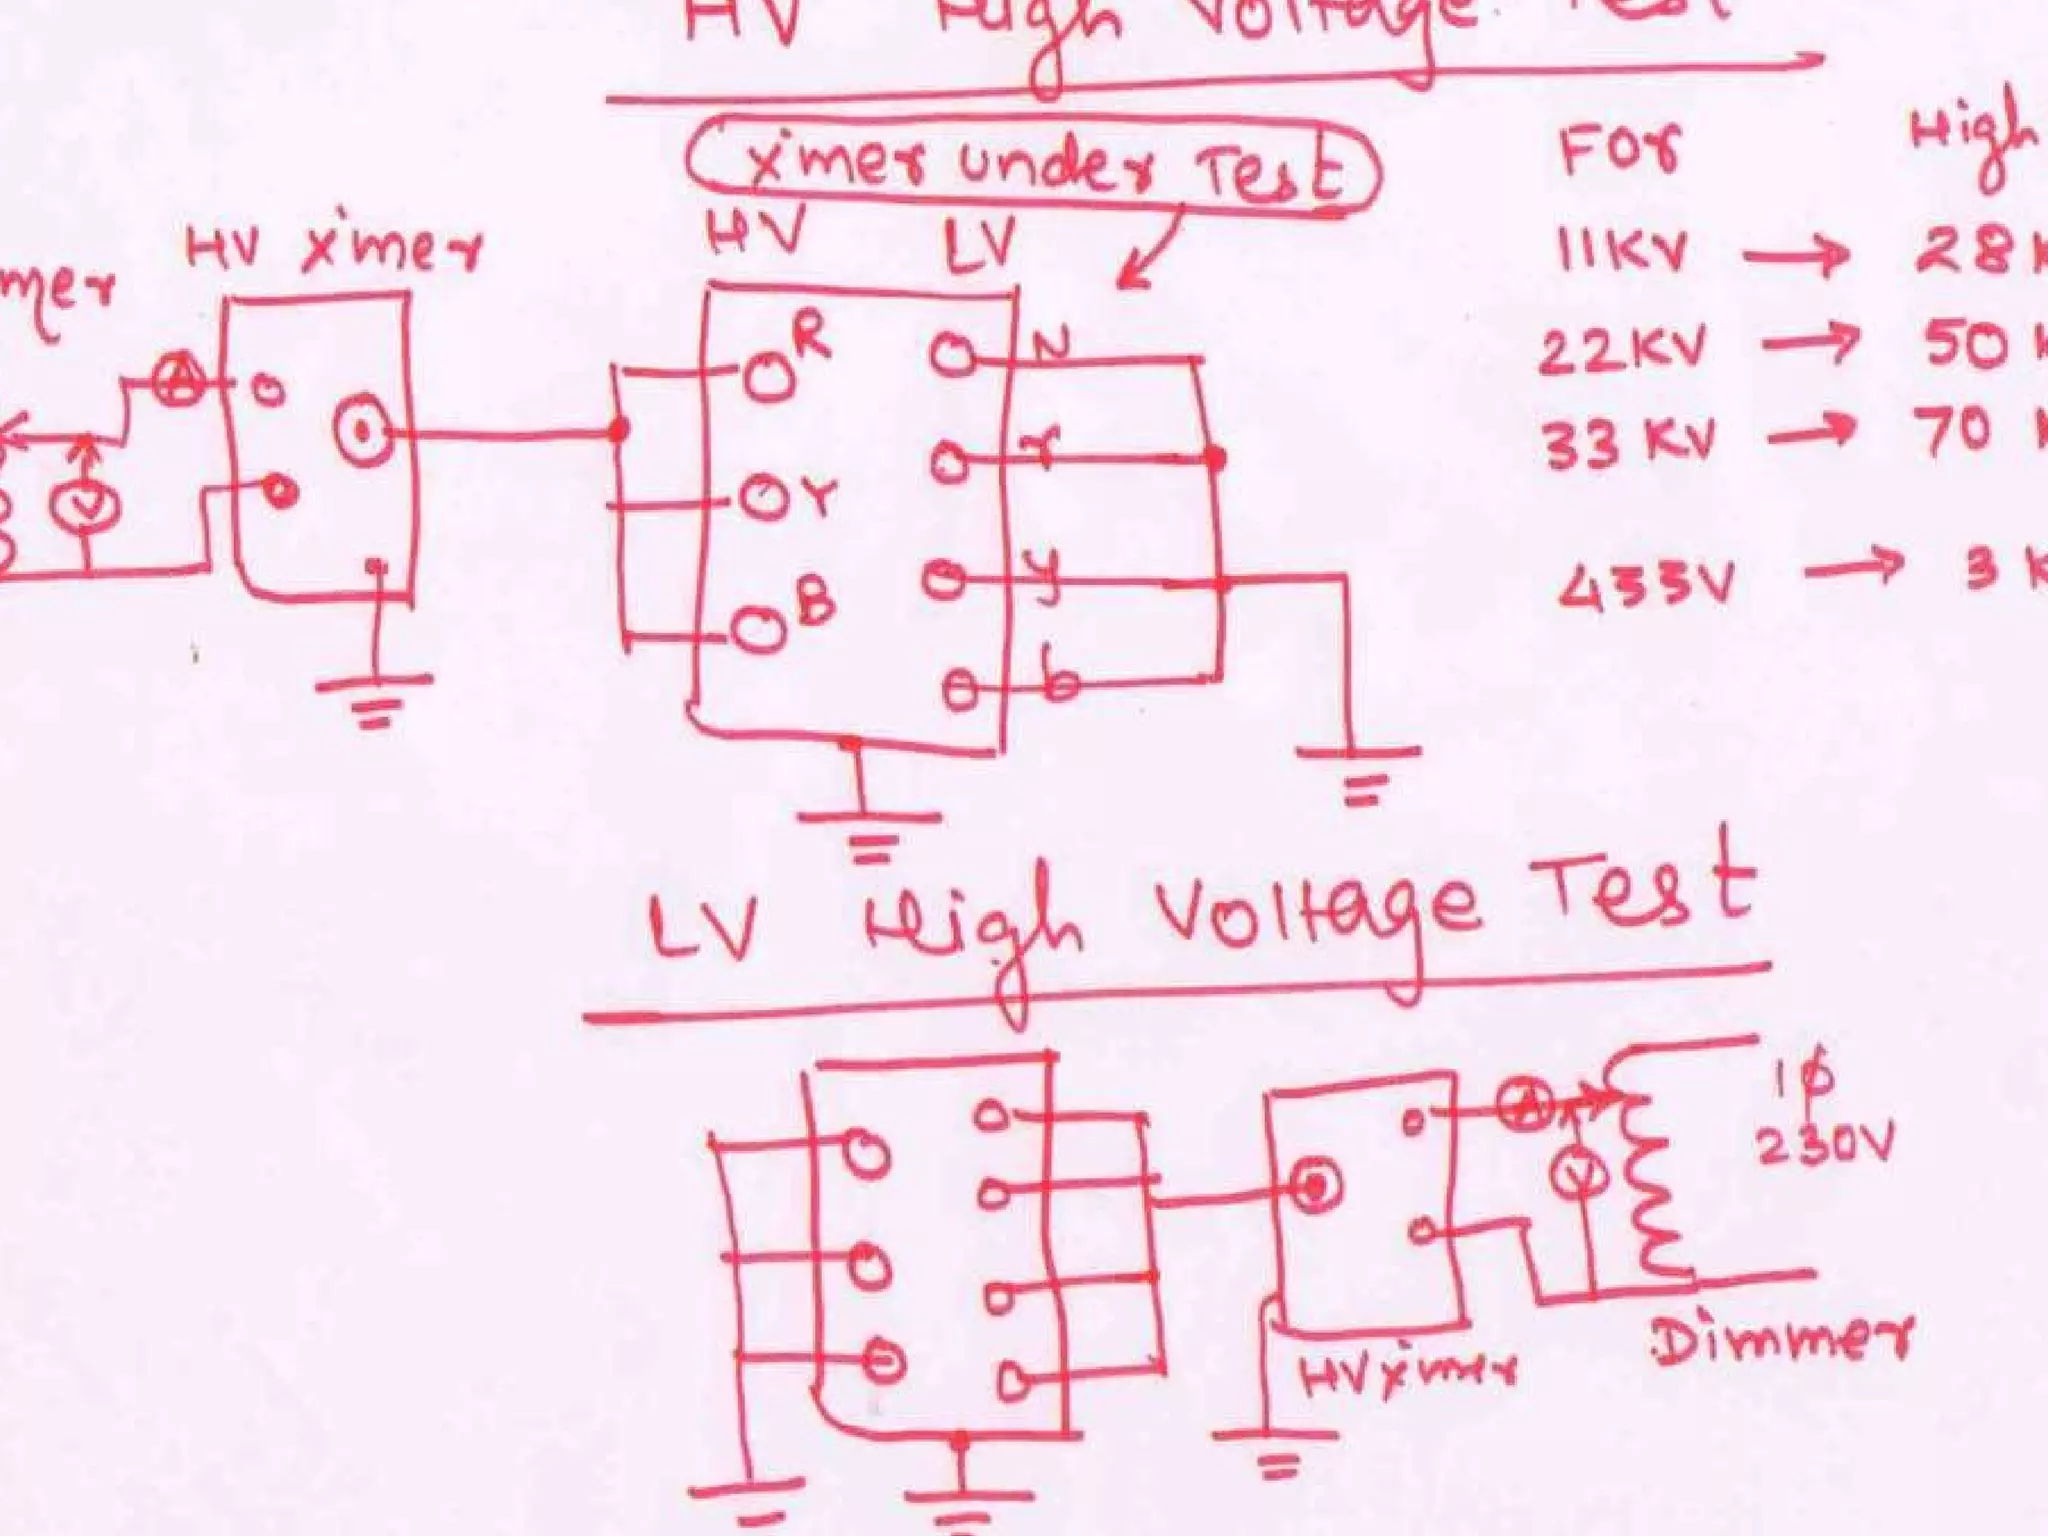 HV High Voltage Test
x'mer under Test
For High
HV LV
HV x'mer
mer
11KV → 28 K
22KV → 50 K
33 KV → 70 K
433V → 3 K
A
V
R
Y
B
N
r
y
b
LV High Voltage Test
1φ
230V
A
V
HV x'mer
Dimmer